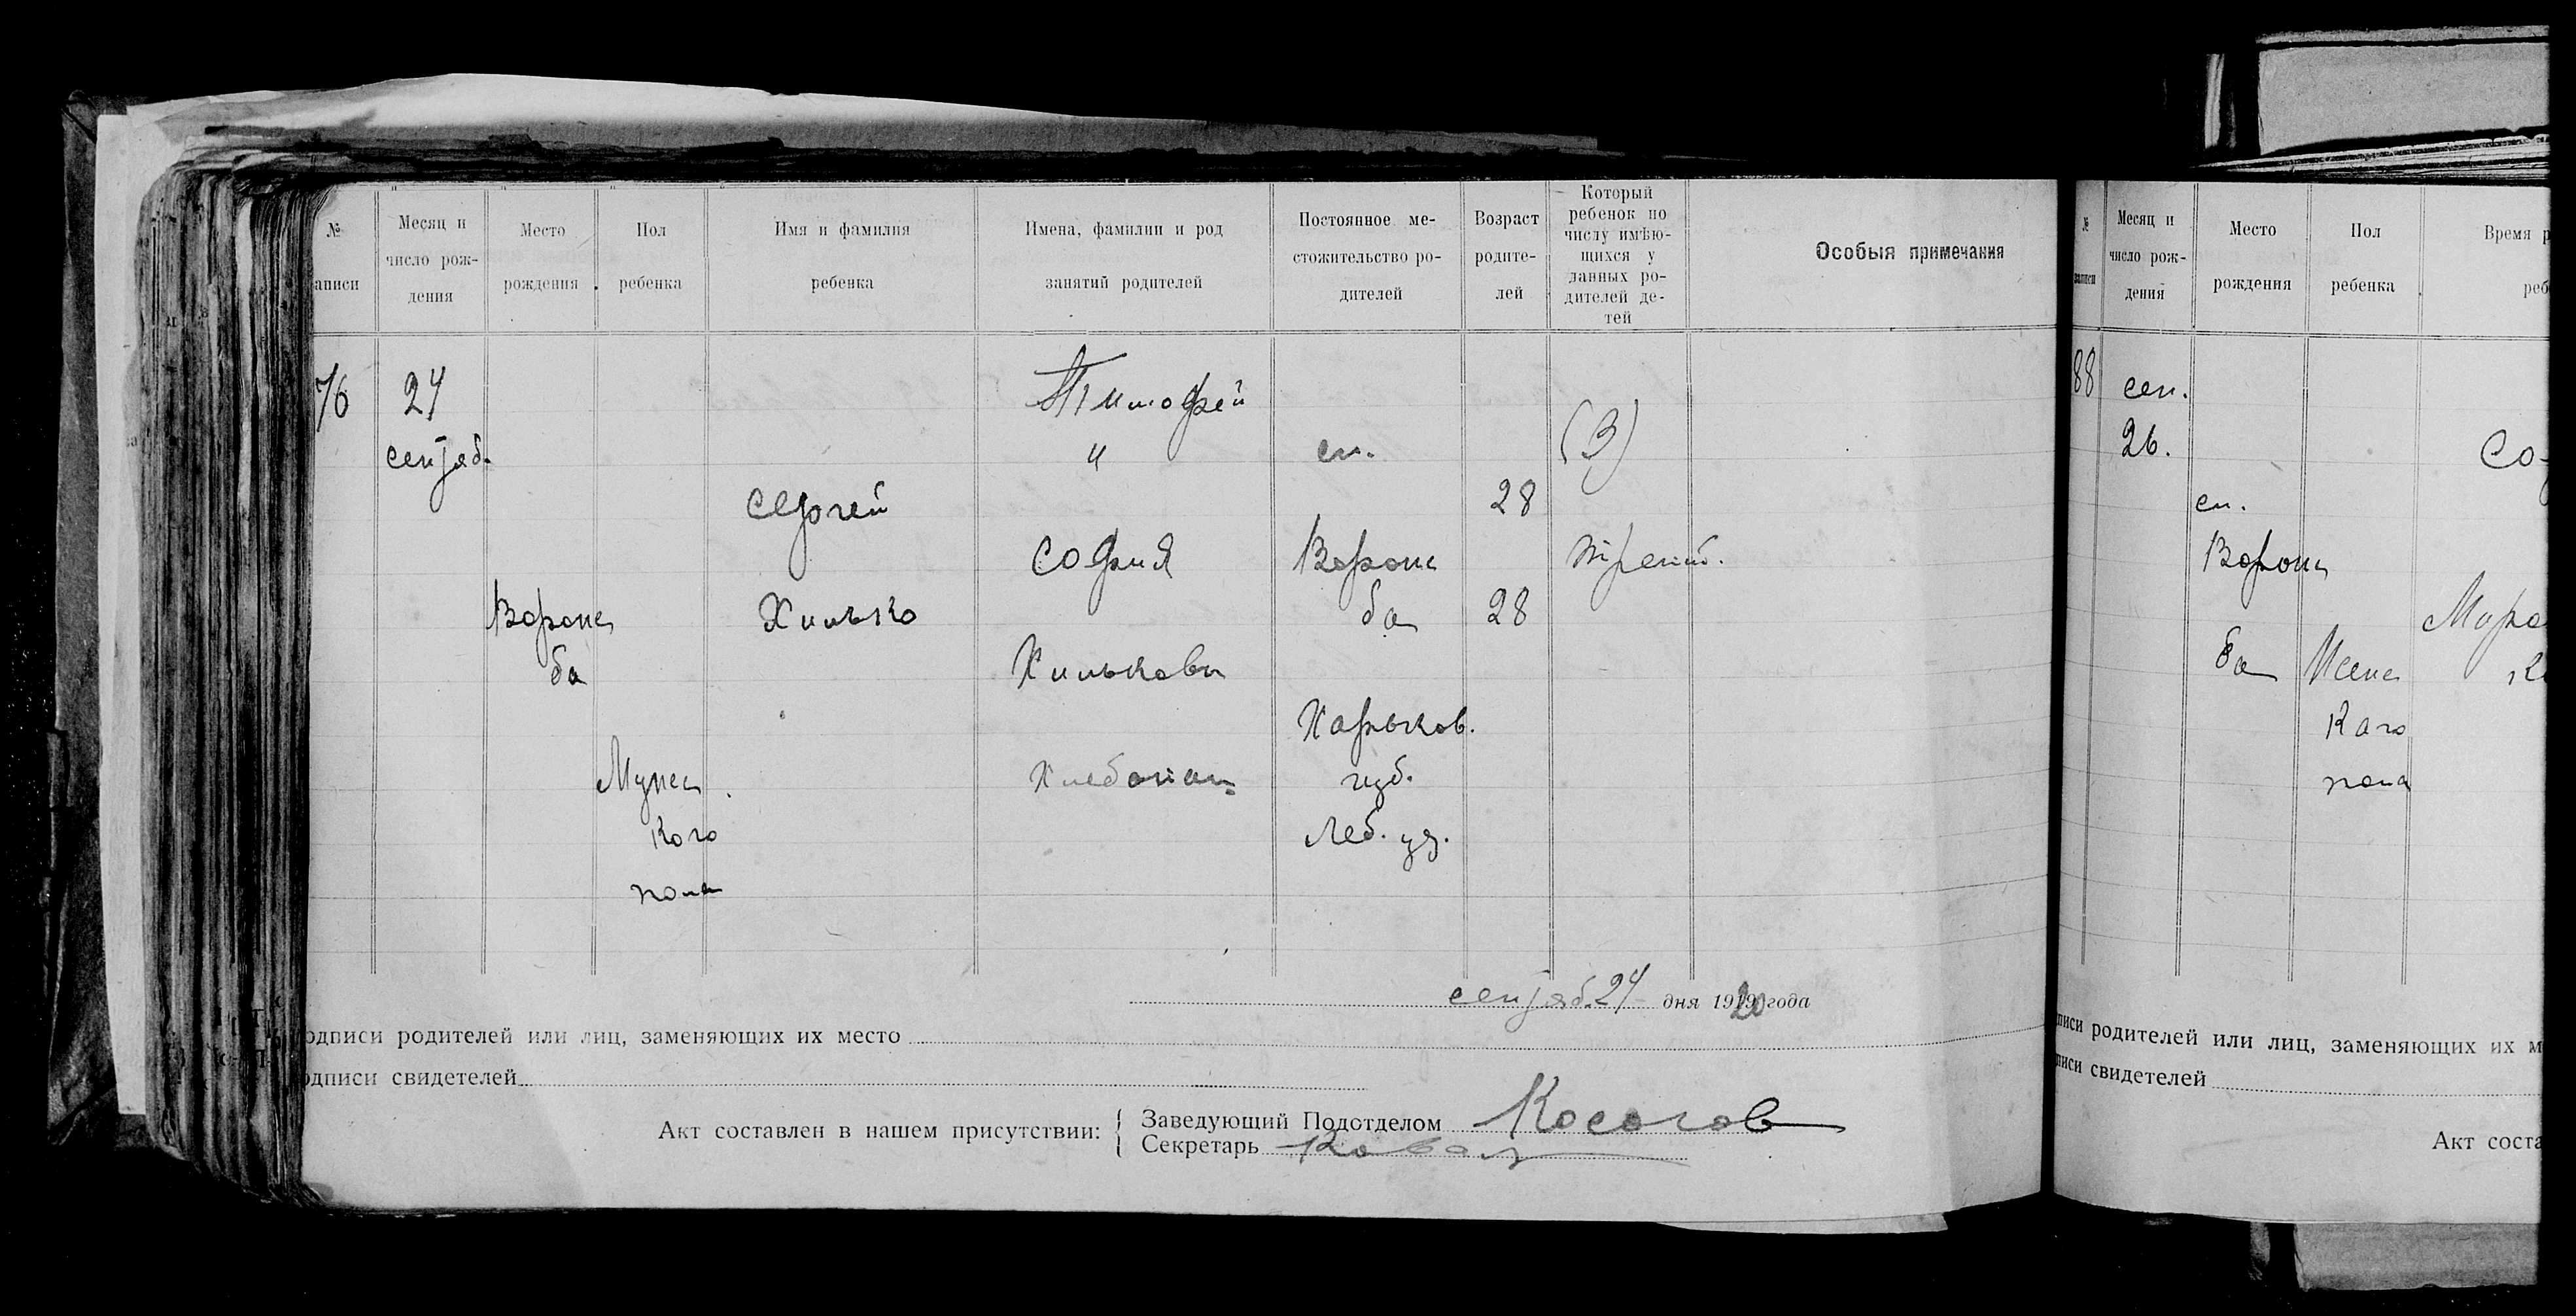 № аписи
Месяц и число рож-дения
Место рождения
Пол ребенка
Имя и фамилия ребенка
Имена, фамилии и род занятий родителей
Постоянное ме-стожительство ро-дителей
Возраст родите-лей
Который ребенок по числу имѣю-щихся у данных ро-дителей де-тей
Особыя примечания
76
24
сентяб.
Ворож
ба
Мужс
кого
пола
Сергей
Хилько
Тимофей
и
София
Хильковы
Хлебопаш
сл.
Ворож
ба
Харьков.
губ.
Леб. уз.
28
28
(3)
трет.
сентяб. 24 дня 1920 года
одписи родителей или лиц, заменяющих их место
одписи свидетелей
Акт составлен в нашем присутствии:
Заведующий Подотделом Косогов
Секретарь
№ записи
Месяц и число рож-дения
Место рождения
Пол ребенка
Время р
реб
88
сен.
26.
сл.
Ворож
ба
Женс
каго
пола
Со
Мар
писи родителей или лиц, заменяющих их м
писи свидетелей
Акт соста